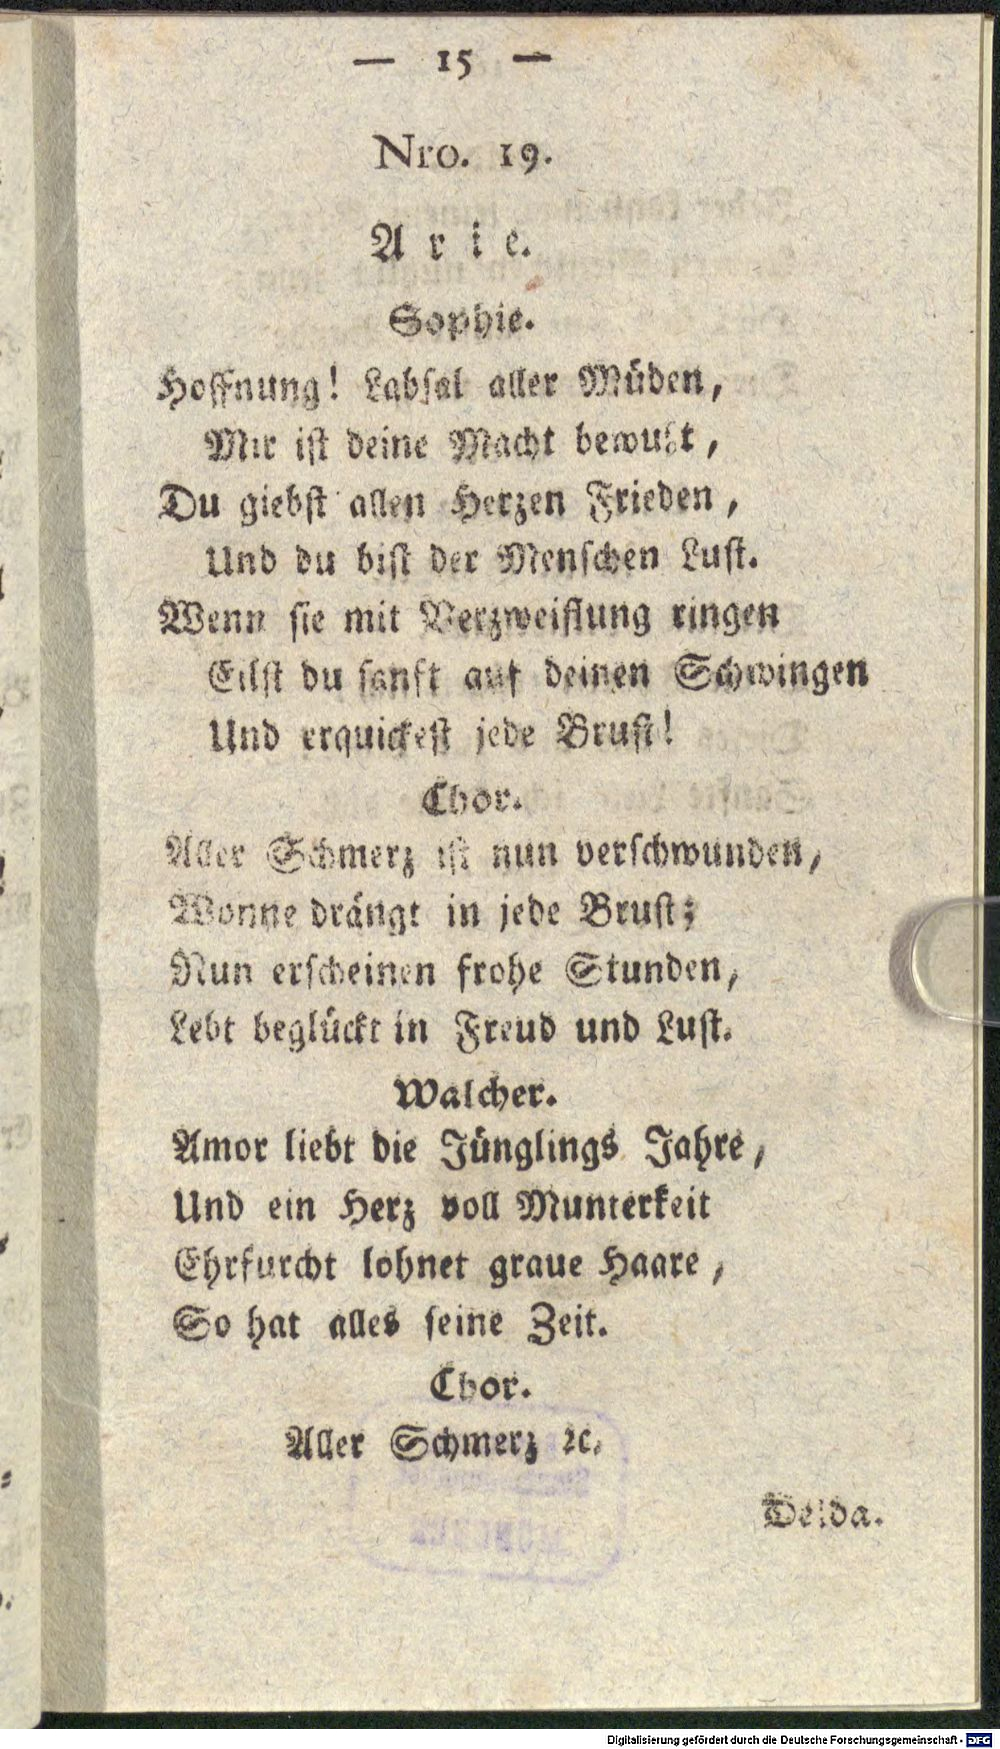 — 15 —
Nro. 19.
Arie.
Sophie.
Hoffnung! Labsal aller Müden,
Mir ist deine Macht bewußt,
Du giebst allen Herzen Frieden,
Und du bist der Menschen Lust.
Wenn sie mit Verzweiflung ringen
Eilst du sanft auf deinen Schwingen
Und erquickest jede Brust!
Chor.
Aller Schmerz ist nun verschwunden,
Wonne drängt in jede Brust;
Nun erscheinen frohe Stunden,
Lebt beglückt in Freud und Lust.
Walcher.
Amor liebt die Jünglings Jahre,
Und ein Herz voll Munterkeit
Ehrfurcht lohnet graue Haare,
So hat alles seine Zeit.
Chor.
Aller Schmerz ꝛc.
Delda.
Digitalisierung gefördert durch die Deutsche Forschungsgemeinschaft - DFG